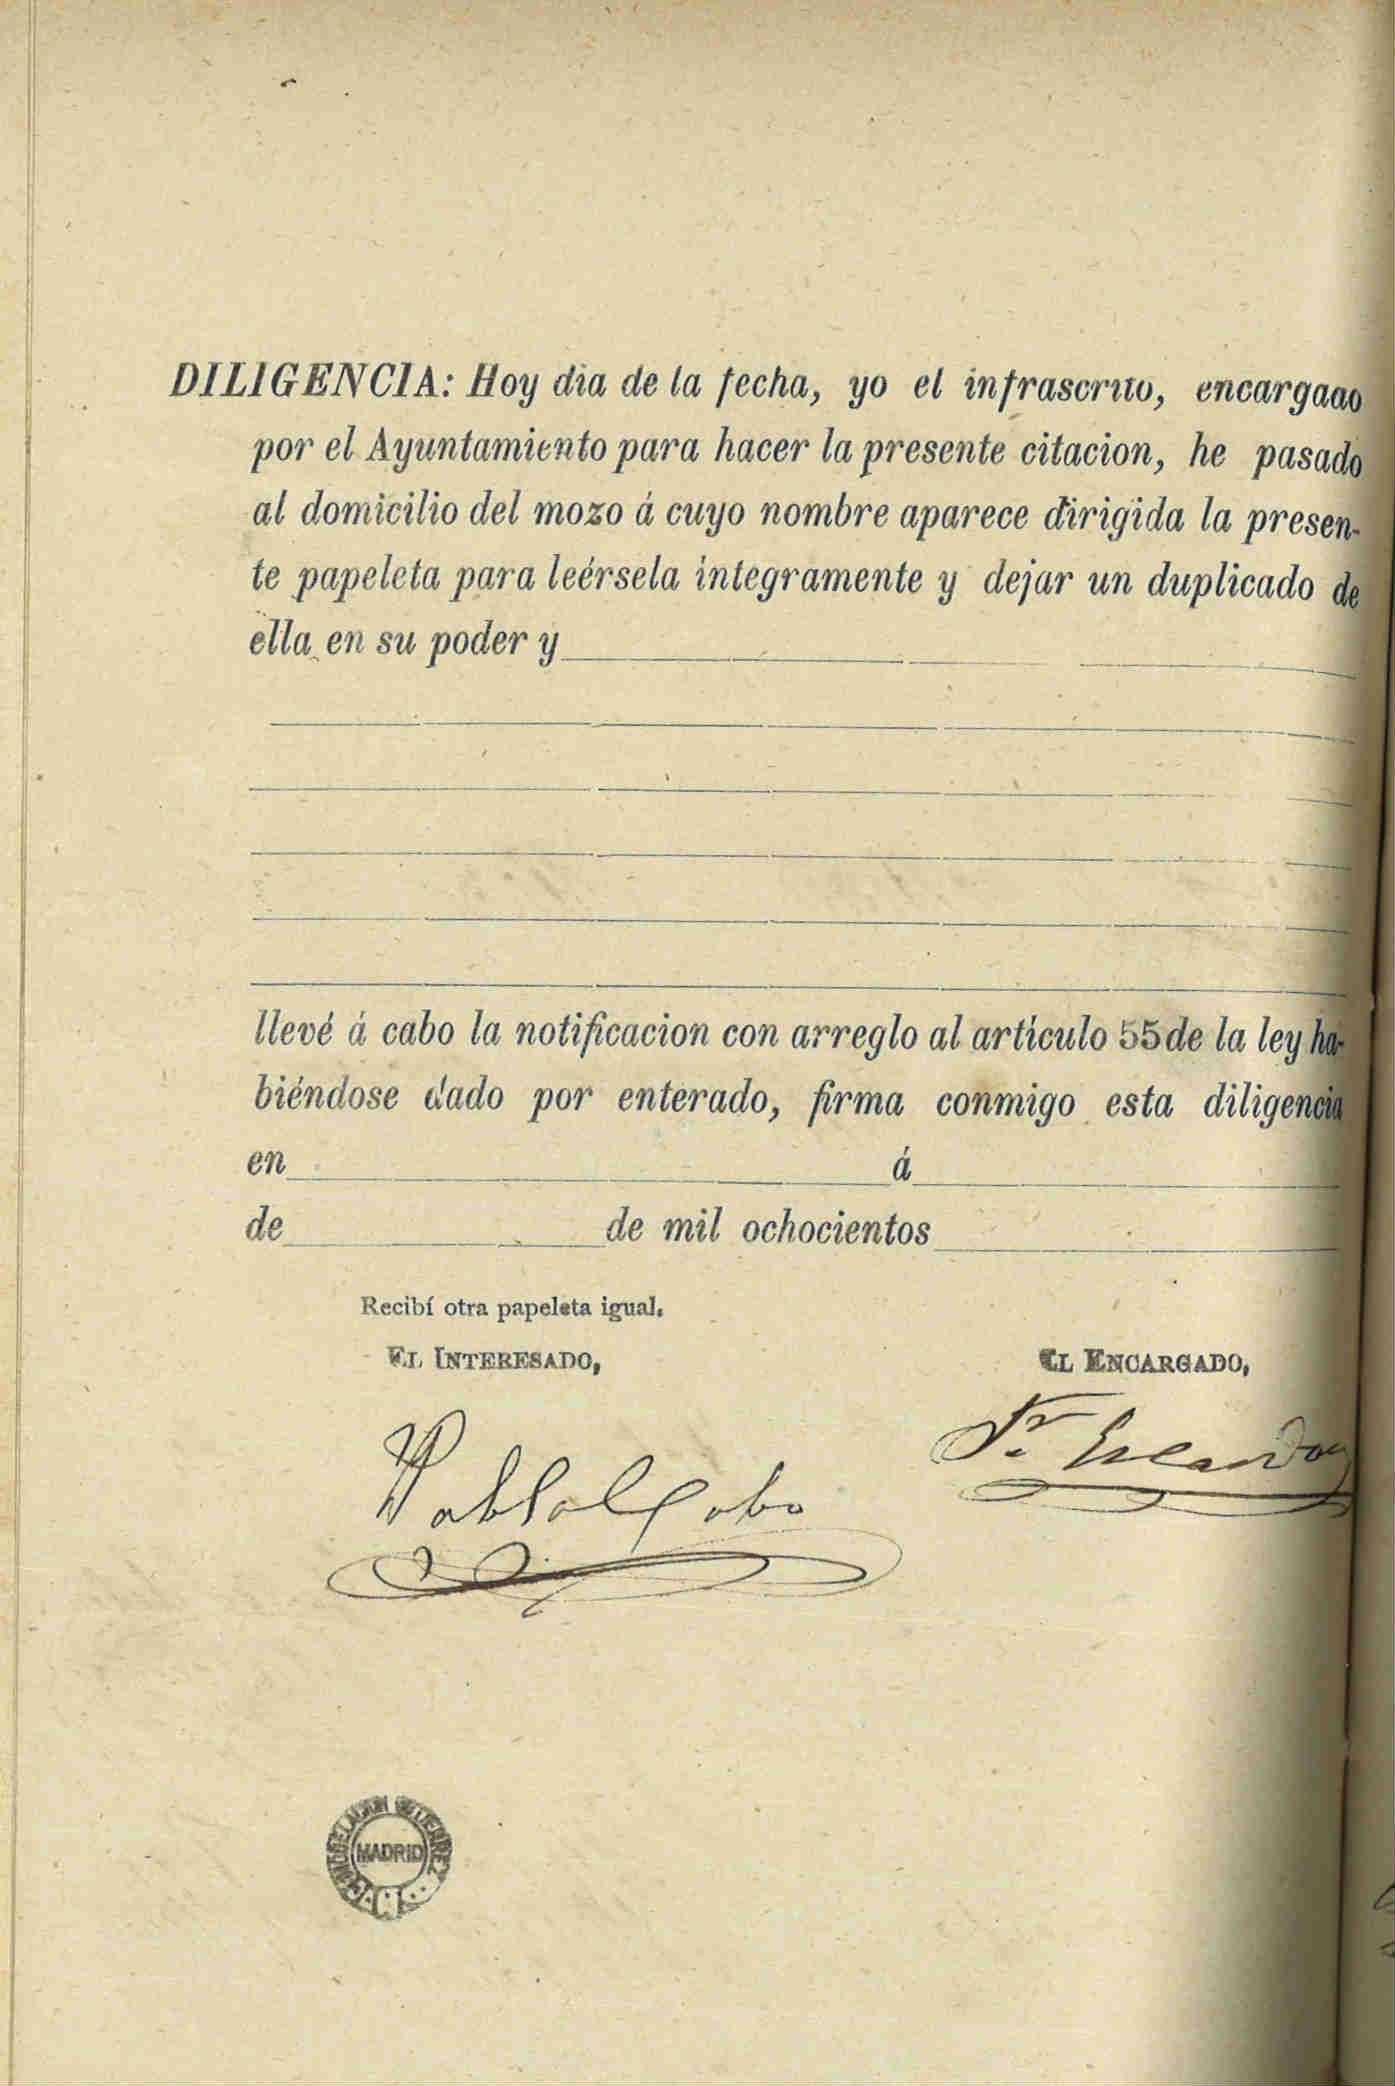 DILIGENCIA: Hoy dia de la fecha, yo el infrascrito, encargado
por el Ayuntamiento para hacer la presente citacion, he pasado
al domicilio del mozo á cuyo nombre aparece dirigida la presen-
te papeleta para leérsela integramente y dejar un duplicado de
ella en su poder y
llevé á cabo la notificacion con arreglo al artículo 55 de la ley ha-
biéndose dado por enterado, firma conmigo esta diligencia
en á
de de mil ochocientos
Recibí otra papeleta igual.
EL INTERESADO,
EL ENCARGADO,
Pablo Cobo
MADRID